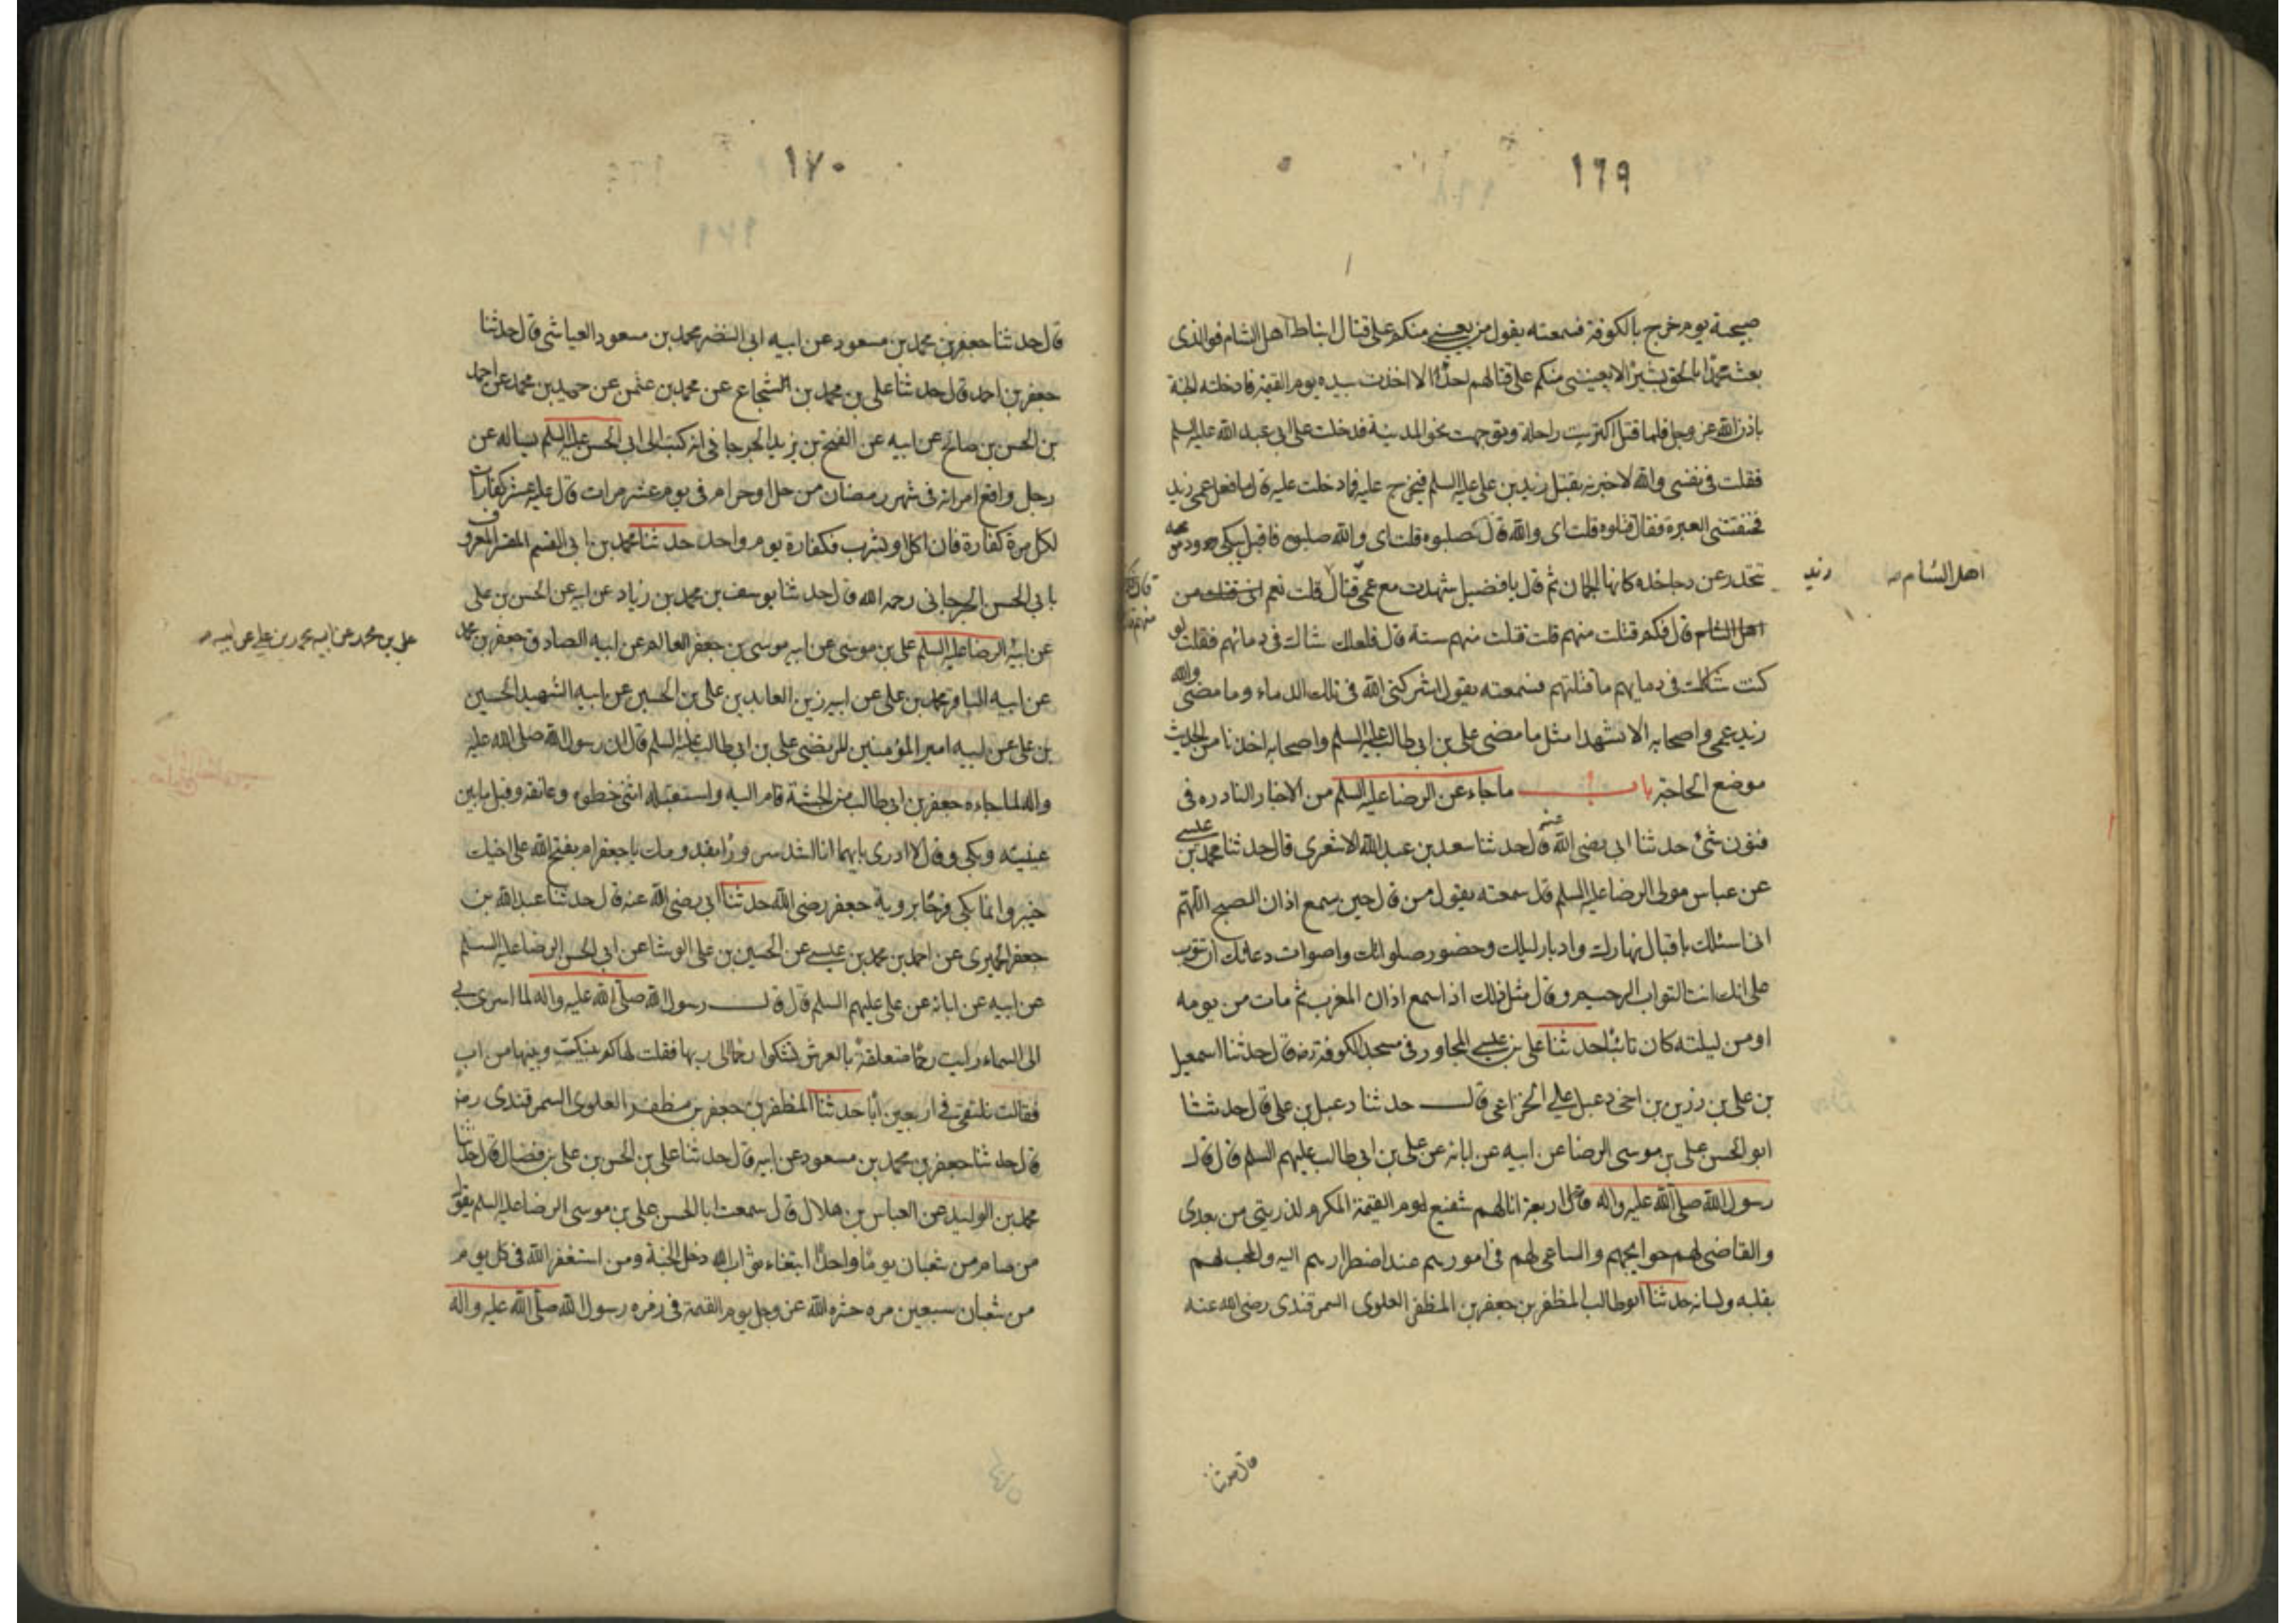 ١٦٩
صبيحة يوم خرج بالكوفة فسمعته يقول من يعينني منكم على قتال انباط اهل الشام فوالذى
بعث محمدا بالحق بشيرا لا يعيننى منكم على قتالهم احد الا اخذت بيده يوم القيمة فادخلته الجنة
باذن الله عز وجل فلما قتل اكتريت راحلة وتوجهت نحو المدينة فدخلت على ابى عبد الله عليه السلم
فقلت فى نفسى والله لا خبرته بقتل زيد بن على عليه السلم فيجزع عليه فلما دخلت عليه قال ما فعل عمى زيد
فخنقتنى العبرة فقال قتلوه قلت اى والله قال فصلبوه قلت اى والله صلبوه فاقبل يبكى ودموعه
تنحدر عن ديباجتى خده كانها الجمان ثم قال يا فضيل شهدت مع عمى قتال قلت نعم من
اهل الشام
اهل الشام قال فكم قتلت منهم قلت قتلت منهم ستة قال فلعلك شاك فى دمائهم فقلت لو
كنت شاكا فى دمايهم ما قتلتهم فسمعته يقول اشركنى الله فى تلك الدماء وما مضى والله
زيد عمى واصحابه الا شهدا مثل ما مضى على بن ابى طالب عليه السلم واصحابه اخذنا من الحديث
موضع الحاجة باب ما جاء عن الرضا عليه السلم من الاخبار النادره فى
فنون شئ حدثنا ابى رضى الله عنه قال حدثنا سعد بن عبد الله الاشعرى قال حدثنا محمد بن عيسى
عن عباس مولى الرضا عليه السلم قال سمعته يقول من قال حين يسمع اذان الصبح اللهم
انى اسئلك باقبال نهارك وادبار ليلك وحضور صلواتك واصوات دعاتك ان تتوب
على انك انت التواب الرحيم وقال مثل ذلك اذا سمع اذان المغرب ثم مات من يومه
او من ليلته كان تائبا حدثنا على بن عيسى المجاور فى مسجد الكوفة رضه قال حدثنا اسمعيل
بن على بن رزين بن اخى دعبل على الخزاعى قال حدثنا دعبل بن على قال حدثنا
ابو الحسن على بن موسى الرضا عن ابيه عن ابائه عن على بن ابى طالب عليهم السلم قال قال
رسول الله صلى الله عليه واله اربعة انا لهم شفيع يوم القيمة المكرم لذريتى من بعدى
والقاضى لهم حوايجهم والساعى لهم فى امورهم عند اضطرارهم اليه والمحب لهم
بقلبه ولسانه حدثنا ابو طالب المظفر بن جعفر بن المظفر العلوى السمرقندى رضى الله عنه
قال حدثنا
١٧٠
قال حدثنا جعفر بن محمد بن مسعود عن ابيه ابى النضر محمد بن مسعود العياشى قال حدثنا
جعفر بن احمد قال حدثنا على بن محمد بن الشجاع عن محمد بن عثمن عن حميد بن محمد عن احمد
بن الحسن بن صالح عن ابيه عن الفتح بن يزيد الجرجانى انه كتب الى ابى الحسن عليه السلم يساله عن
رجل واقع امراته فى شهر رمضان من حل او حرام فى يوم عشر مرات قال عليه عشر كفارات
لكل مرة كفارة فان اكل او شرب فكفارة يوم واحد حدثنا محمد بن ابى القسم المفسر المعروف
بابى الحسن الجرجانى رحمه الله قال حدثنا يوسف بن محمد بن زياد عن ابيه عن الحسن بن على
على بن محمد عن ابيه محمد بن على عن ابيه
عن ابيه الرضا عليه السلم على بن موسى عن ابيه موسى بن جعفر العالم عن ابيه الصادق جعفر بن محمد
عن ابيه الباقر محمد بن على عن ابيه زين العابدين على بن الحسين عن ابيه الشهيد الحسين
بن على عن ابيه امير المؤمنين المرتضى على بن ابى طالب عليه السلم قال ان رسول الله صلى الله عليه
واله لما جاءه جعفر بن ابى طالب من الحبشة قام اليه واستقبله اثنى خطوه وعانقه وقبل ما بين
عينيه وبكى وقال لا ادرى بايهما انا اشد سرورا بقدومك يا جعفر ام بفتح الله على اخيك
خيبر وانما بكى فرحا بروية جعفر رضى الله حدثنا ابى رضى الله عنه قال حدثنا عبد الله بن
جعفر الحميرى عن احمد بن محمد بن عيسى عن الحسين بن على الوشا عن ابى الحسن الرضا عليه السلم
عن ابيه عن ابائه عن على عليهم السلم قال قال رسول الله صلى الله عليه واله لما اسرى بى
الى السماء رايت رحما متعلقة بالعرش تشكوا رحما الى ربها فقلت لها كم بينك وبينها من اب
فقالت نلتقى فى اربعين ابا حدثنا المظفر بن جعفر بن مظفر العلوى السمرقندى رضه
قال حدثنا جعفر بن محمد بن مسعود عن ابيه قال حدثنا على بن الحسن بن على بن فضال قال حدثنا
محمد بن الوليد عن العباس بن هلال قال سمعت ابا الحسن على بن موسى الرضا عليه السلم يقول
من صام من شعبان يوما واحدا ابتغاء ثواب الله دخل الجنة ومن استغفر الله فى كل يوم
من شعبان سبعين مره حشره الله عز وجل يوم القيمة فى زمره رسول الله صلى الله عليه واله